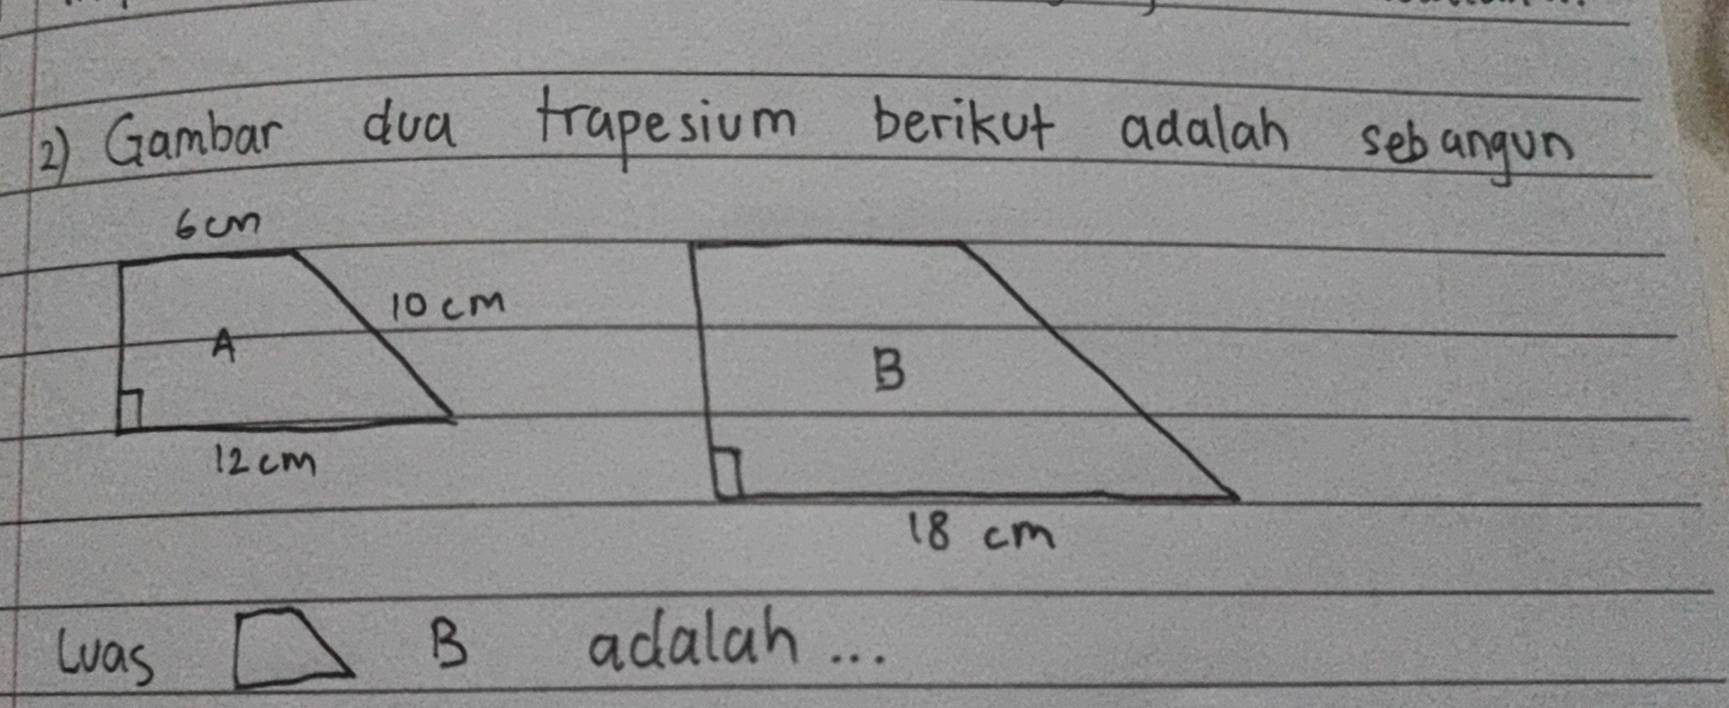 2) Gambar dua trapesium berikut adalah sebangun
6cm
10 cm
A
B
12cm
18 cm
Luas B adalah...